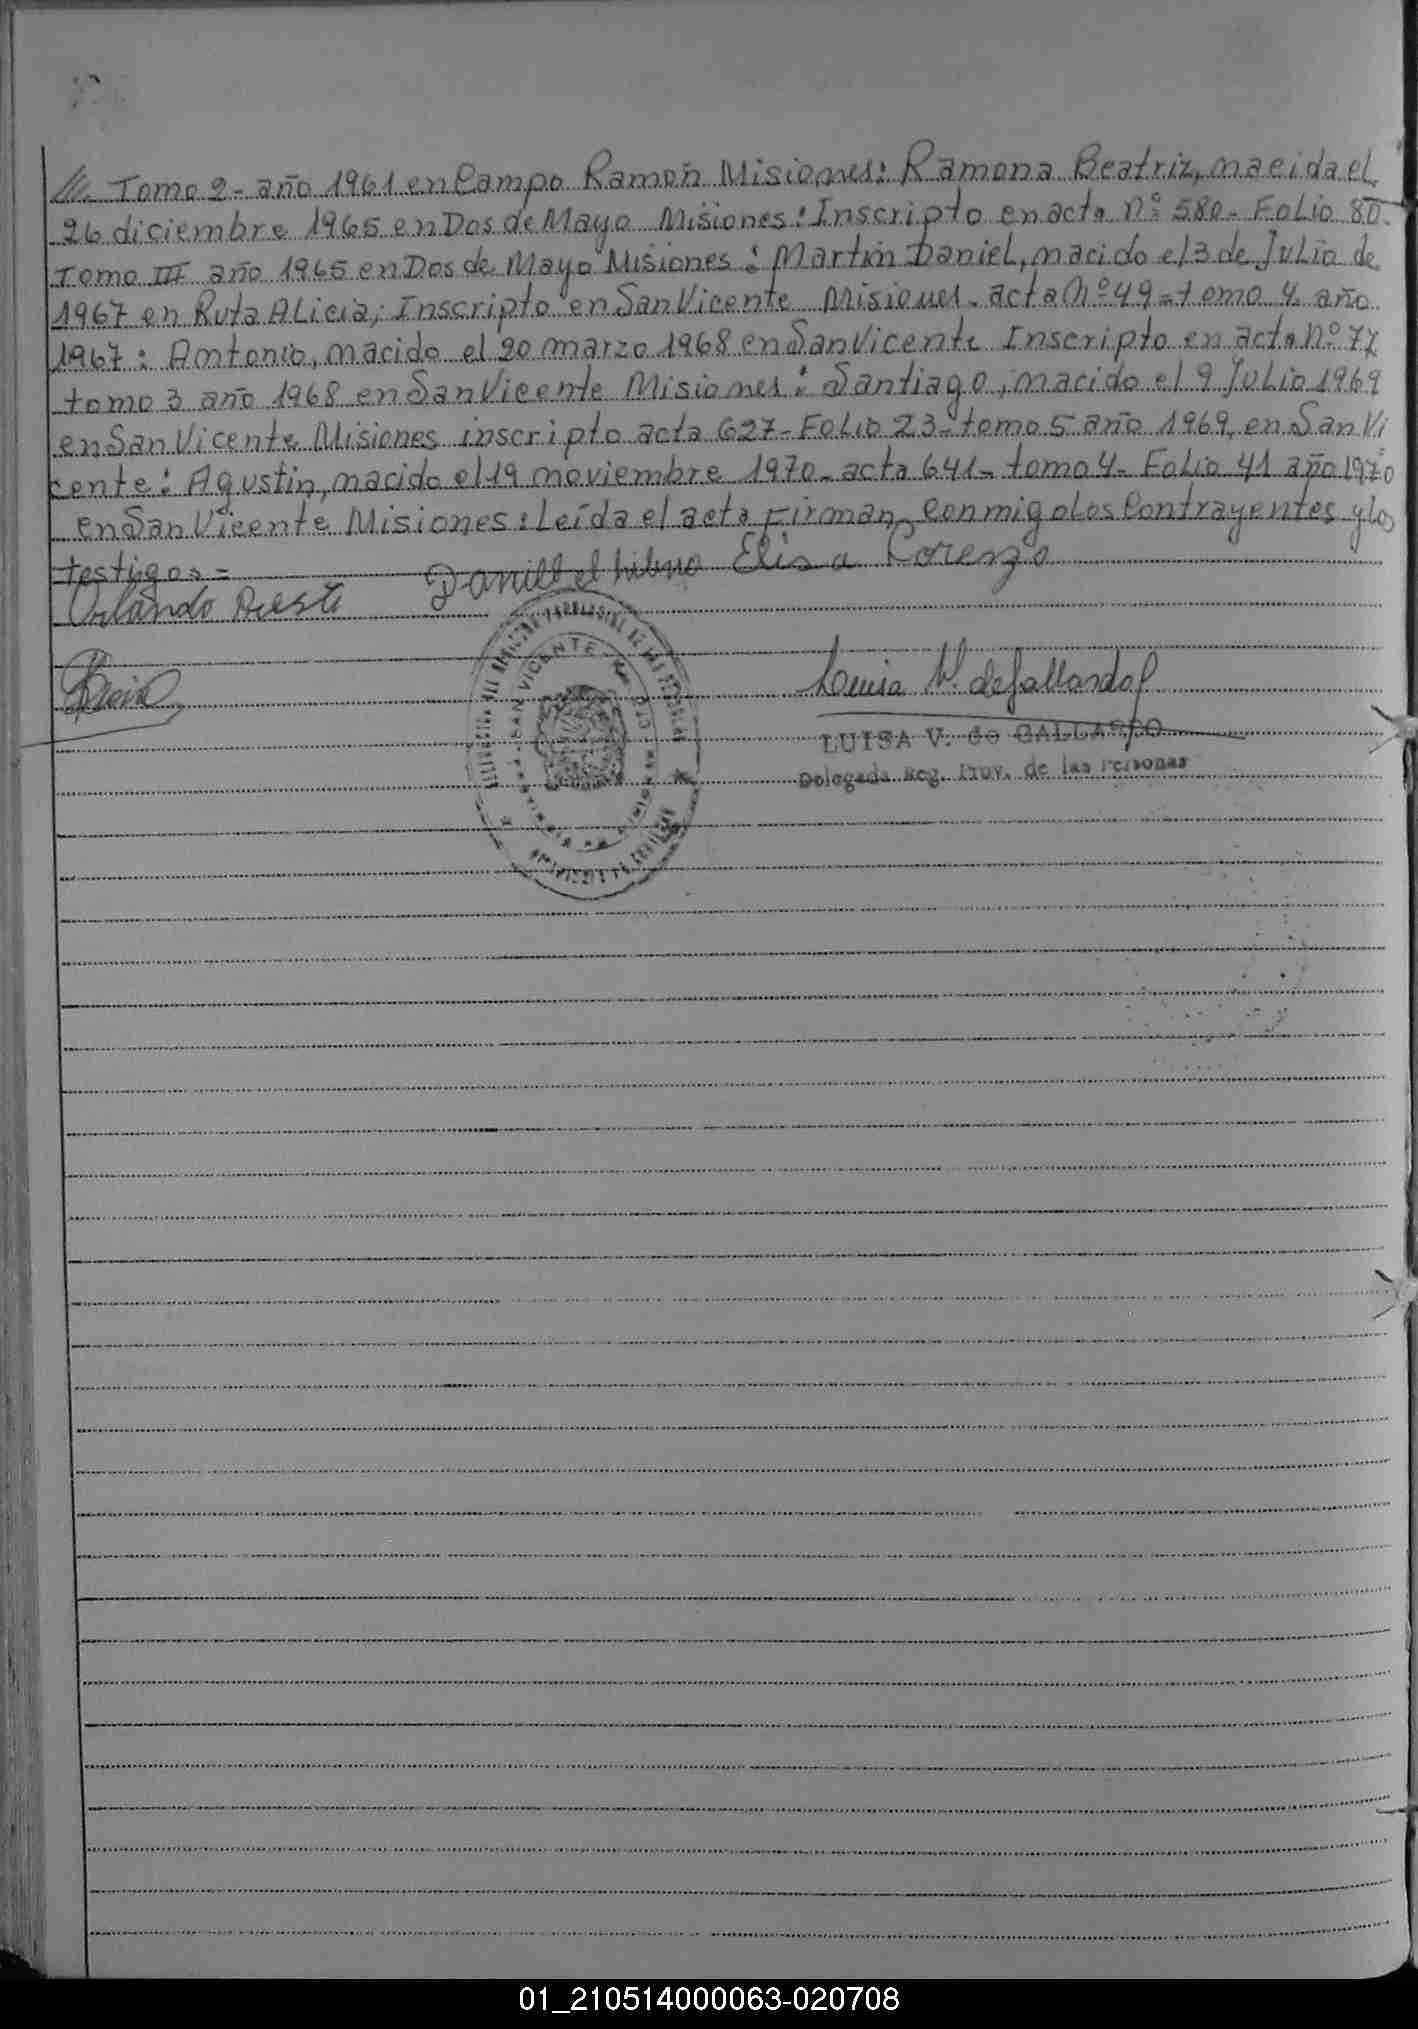 ///. Tomo 2- año 1961 en Campo Ramón Misiones: Ramona Beatriz, nacida el
26 diciembre 1965 en Dos de Mayo Misiones: Inscripto en acta nº 580- Folio 80-
Tomo III año 1965 en Dos de Mayo Misiones: Martin Daniel, nacido el 3 de Julio de
1967 en Ruta Alicia; Inscripto en San Vicente Misiones- acta Nº 49- tomo 4 año
1967: Antonio, nacido el 20 marzo 1968 en San Vicente Inscripto en acta nº 77
tomo 3 año 1968 en San Vicente Misiones: Santiago, nacido el 9 Julio 1969
en San Vicente Misiones inscripto acta 627- Folio 23- tomo 5 año 1969, en San Vi
cente: Agustin, nacido el 19 noviembre 1970- acta 641- tomo 4- Folio 41 año 1970
en San Vicente Misiones: Leída el acta Firman conmigo los Contrayentes y los
testigos=
Elisa Lorenzo
Orlando
SAN VICENTE
Luisa V. de Gallardo
LUISA V. de GALLARDO
Delegada Reg. Prov. de las Personas
01_210514000063-020708